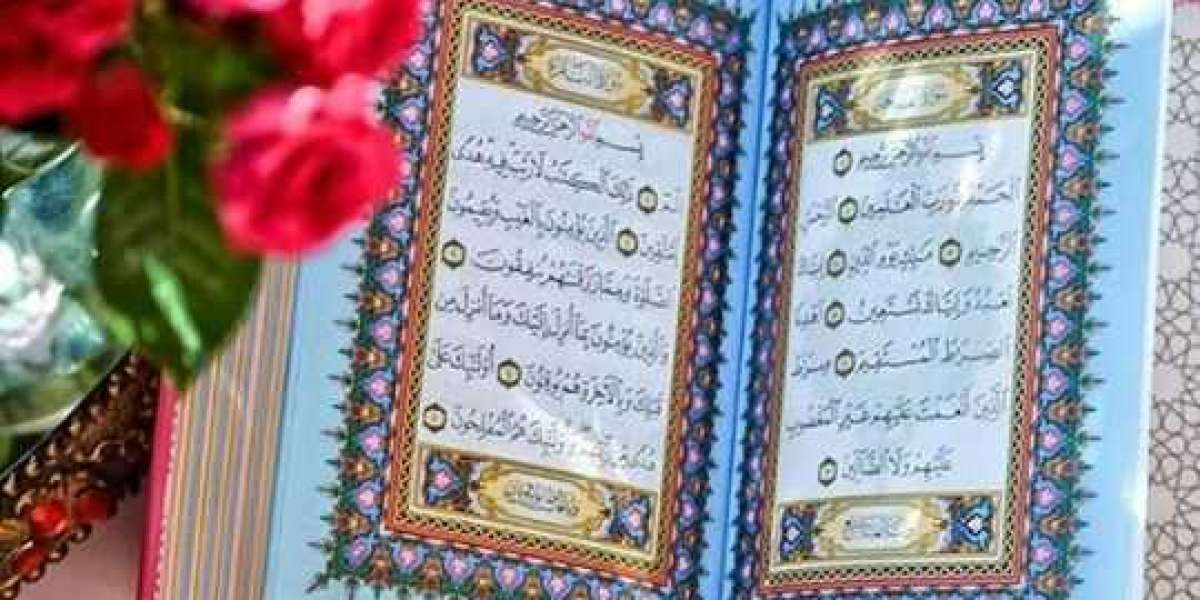 بِسْمِ ٱللَّهِ ٱلرَّحْمَٰنِ ٱلرَّحِيمِ
ٱلْحَمْدُ لِلَّهِ رَبِّ ٱلْعَٰلَمِينَ ٱلرَّحْمَٰنِ
ٱلرَّحِيمِ مَٰلِكِ يَوْمِ ٱلدِّينِ إِيَّاكَ
نَعْبُدُ وَإِيَّاكَ نَسْتَعِينُ ٱهْدِنَا
ٱلصِّرَٰطَ ٱلْمُسْتَقِيمَ صِرَٰطَ
ٱلَّذِينَ أَنْعَمْتَ عَلَيْهِمْ غَيْرِ ٱلْمَغْضُوبِ
عَلَيْهِمْ وَلَا ٱلضَّآلِّينَ
بِسْمِ ٱللَّهِ ٱلرَّحْمَٰنِ ٱلرَّحِيمِ
الٓمٓ ذَٰلِكَ ٱلْكِتَٰبُ لَا رَيْبَ فِيهِ هُدًى
لِّلْمُتَّقِينَ ٱلَّذِينَ يُؤْمِنُونَ بِٱلْغَيْبِ وَيُقِيمُونَ
ٱلصَّلَوٰةَ وَمِمَّا رَزَقْنَٰهُمْ يُنفِقُونَ
وَٱلَّذِينَ يُؤْمِنُونَ بِمَآ أُنزِلَ إِلَيْكَ وَمَآ أُنزِلَ مِن
قَبْلِكَ وَبِٱلْءَاخِرَةِ هُمْ يُوقِنُونَ أُو۟لَٰٓئِكَ عَلَىٰ
هُدًى مِّن رَّبِّهِمْ وَأُو۟لَٰٓئِكَ هُمُ ٱلْمُفْلِحُونَ